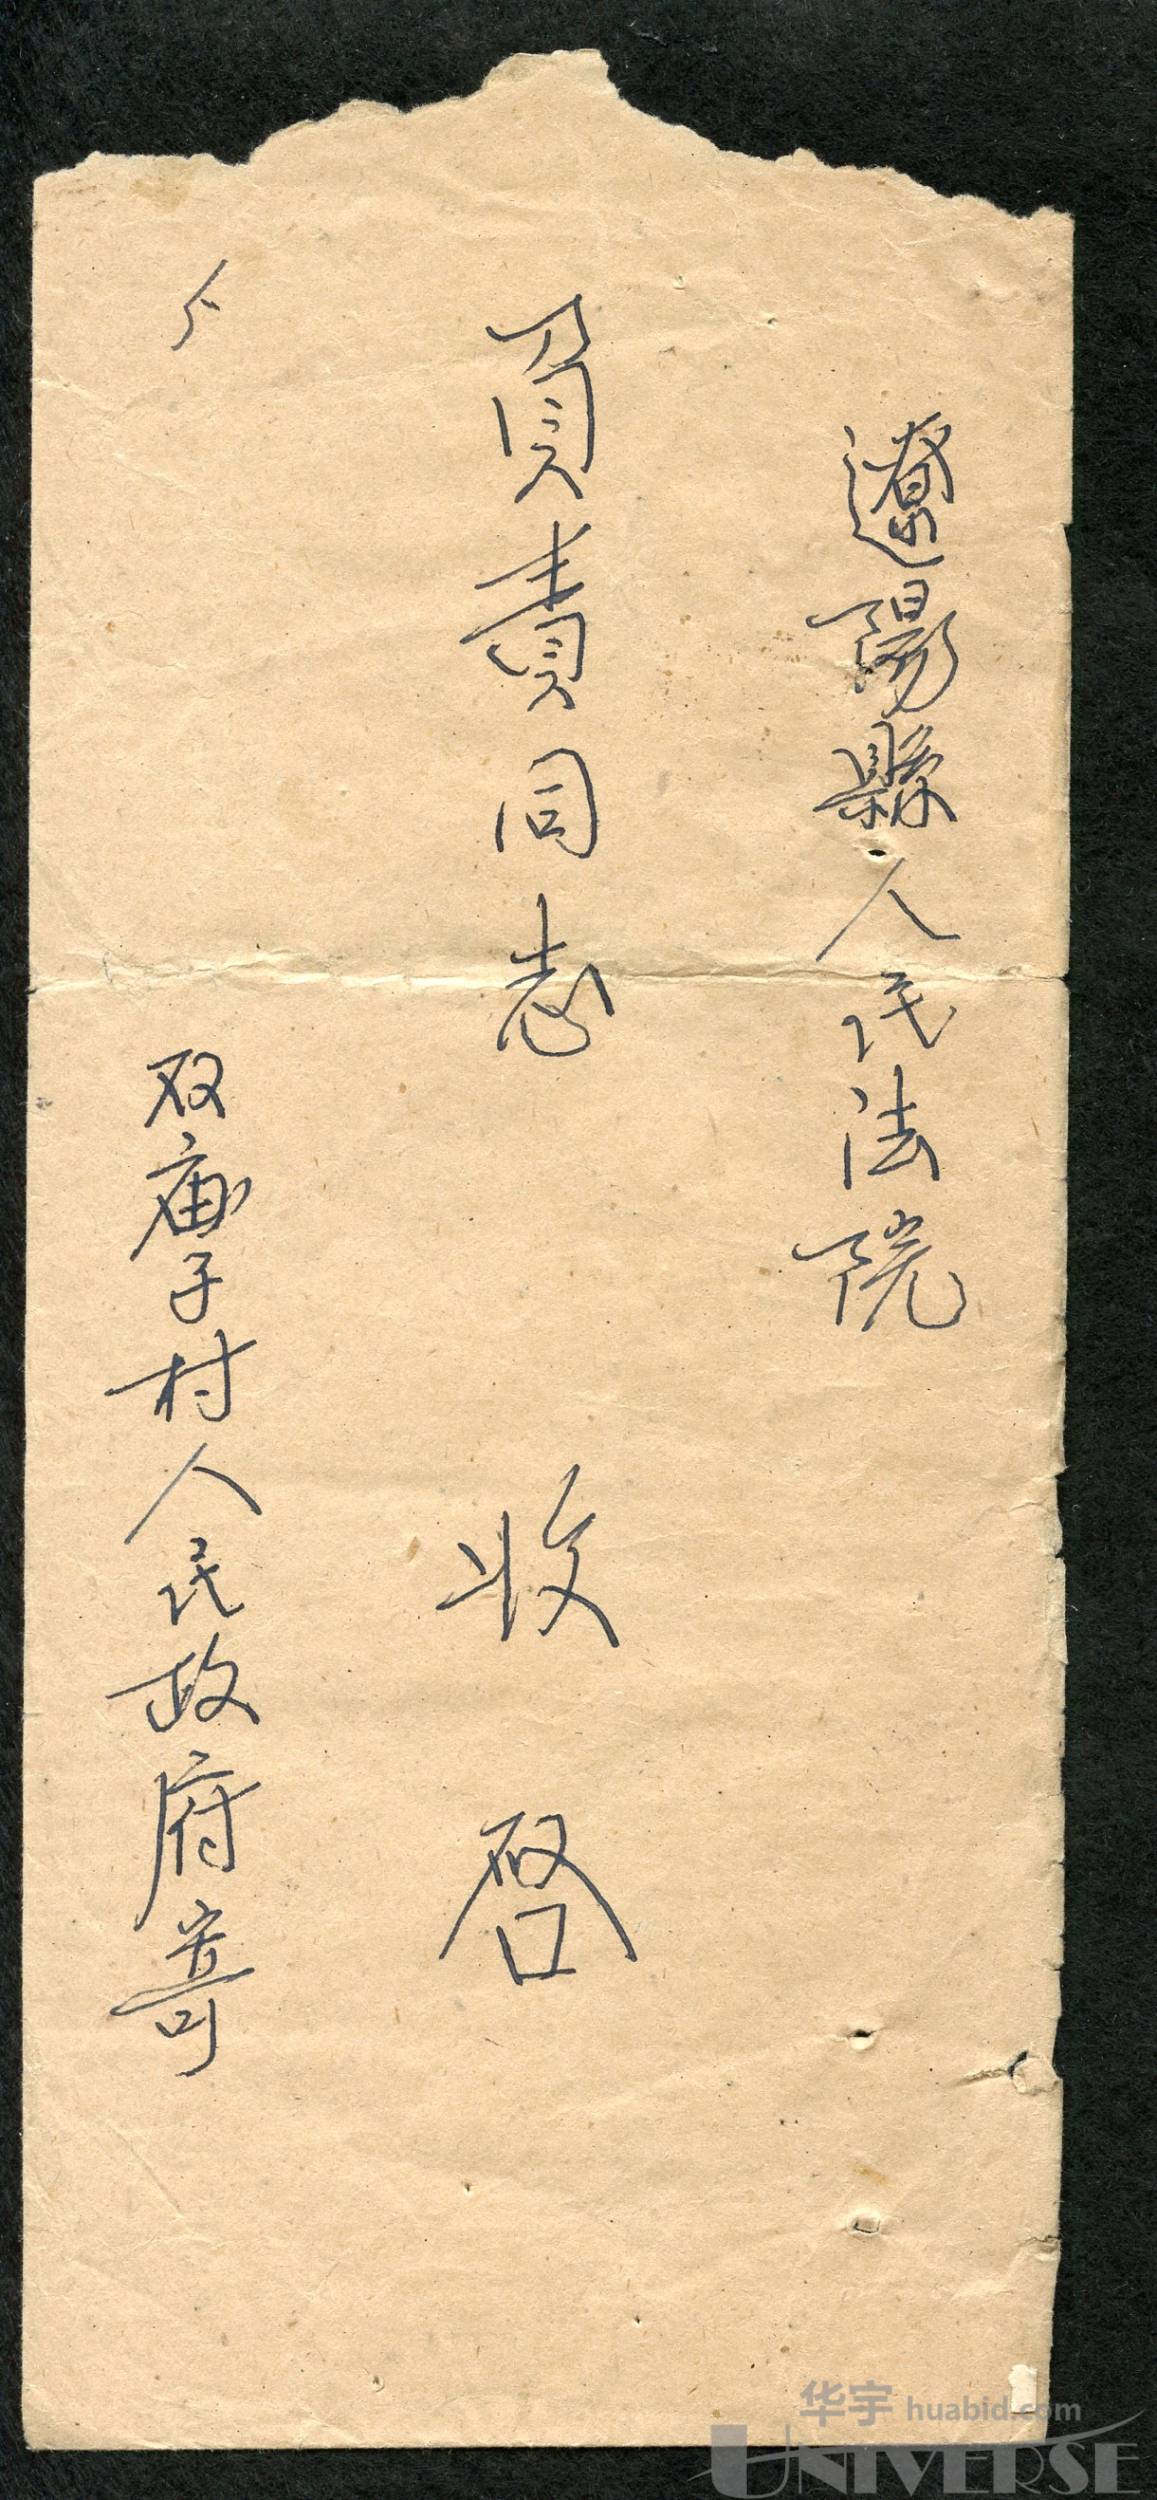 遼陽縣人民法院
負責同志 收 啓
双庙子村人民政府寄
华宇 huabid.com
UNIVERSE